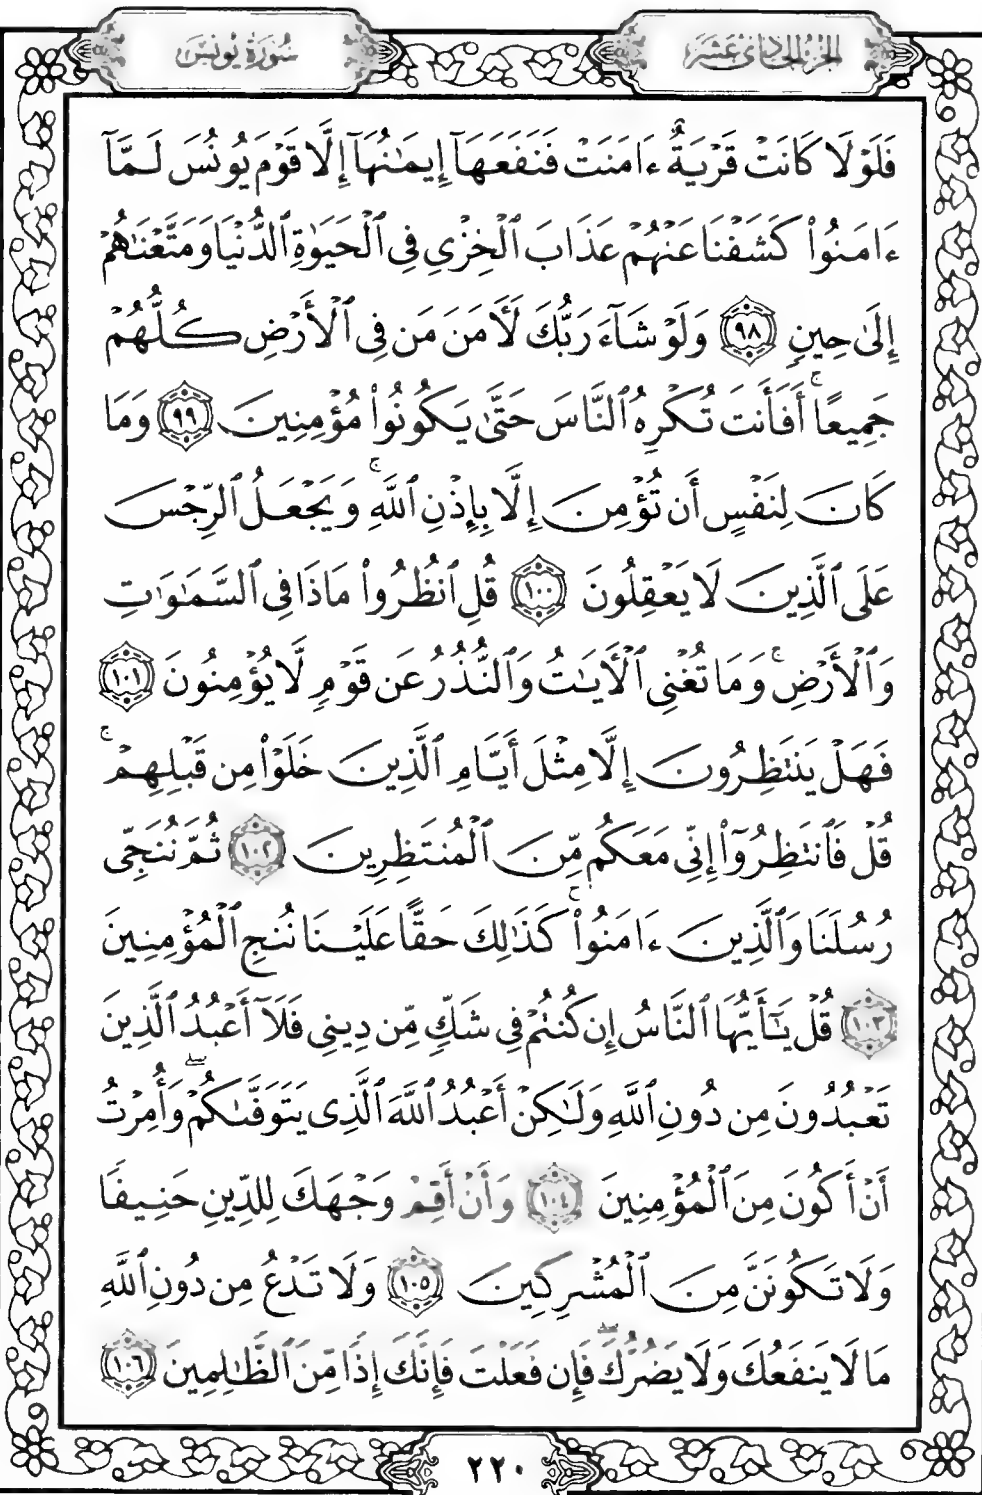 الجزء الحادي عشر
سورة يونس
فَلَوْلَا كَانَتْ قَرْيَةٌ ءَامَنَتْ فَنَفَعَهَآ إِيمَٰنُهَآ إِلَّا قَوْمَ يُونُسَ لَمَّآ
ءَامَنُوا۟ كَشَفْنَا عَنْهُمْ عَذَابَ ٱلْخِزْىِ فِى ٱلْحَيَوٰةِ ٱلدُّنْيَا وَمَتَّعْنَٰهُمْ
إِلَىٰ حِينٍ ٩٨ وَلَوْ شَآءَ رَبُّكَ لَـَٔامَنَ مَن فِى ٱلْأَرْضِ كُلُّهُمْ
جَمِيعًا ۚ أَفَأَنتَ تُكْرِهُ ٱلنَّاسَ حَتَّىٰ يَكُونُوا۟ مُؤْمِنِينَ ٩٩ وَمَا
كَانَ لِنَفْسٍ أَن تُؤْمِنَ إِلَّا بِإِذْنِ ٱللَّهِ ۚ وَيَجْعَلُ ٱلرِّجْسَ
عَلَى ٱلَّذِينَ لَا يَعْقِلُونَ ١٠٠ قُلِ ٱنظُرُوا۟ مَاذَا فِى ٱلسَّمَٰوَٰتِ
وَٱلْأَرْضِ ۚ وَمَا تُغْنِى ٱلْـَٔايَٰتُ وَٱلنُّذُرُ عَن قَوْمٍ لَّا يُؤْمِنُونَ ١٠١
فَهَلْ يَنتَظِرُونَ إِلَّا مِثْلَ أَيَّامِ ٱلَّذِينَ خَلَوْا۟ مِن قَبْلِهِمْ ۚ
قُلْ فَٱنتَظِرُوٓا۟ إِنِّى مَعَكُم مِّنَ ٱلْمُنتَظِرِينَ ١٠٢ ثُمَّ نُنَجِّى
رُسُلَنَا وَٱلَّذِينَ ءَامَنُوا۟ ۚ كَذَٰلِكَ حَقًّا عَلَيْنَا نُنجِ ٱلْمُؤْمِنِينَ
١٠٣ قُلْ يَٰٓأَيُّهَا ٱلنَّاسُ إِن كُنتُمْ فِى شَكٍّ مِّن دِينِى فَلَآ أَعْبُدُ ٱلَّذِينَ
تَعْبُدُونَ مِن دُونِ ٱللَّهِ وَلَٰكِنْ أَعْبُدُ ٱللَّهَ ٱلَّذِى يَتَوَفَّىٰكُمْ ۖ وَأُمِرْتُ
أَنْ أَكُونَ مِنَ ٱلْمُؤْمِنِينَ ١٠٤ وَأَنْ أَقِمْ وَجْهَكَ لِلدِّينِ حَنِيفًا
وَلَا تَكُونَنَّ مِنَ ٱلْمُشْرِكِينَ ١٠٥ وَلَا تَدْعُ مِن دُونِ ٱللَّهِ
مَا لَا يَنفَعُكَ وَلَا يَضُرُّكَ ۖ فَإِن فَعَلْتَ فَإِنَّكَ إِذًا مِّنَ ٱلظَّٰلِمِينَ ١٠٦
٢٢٠